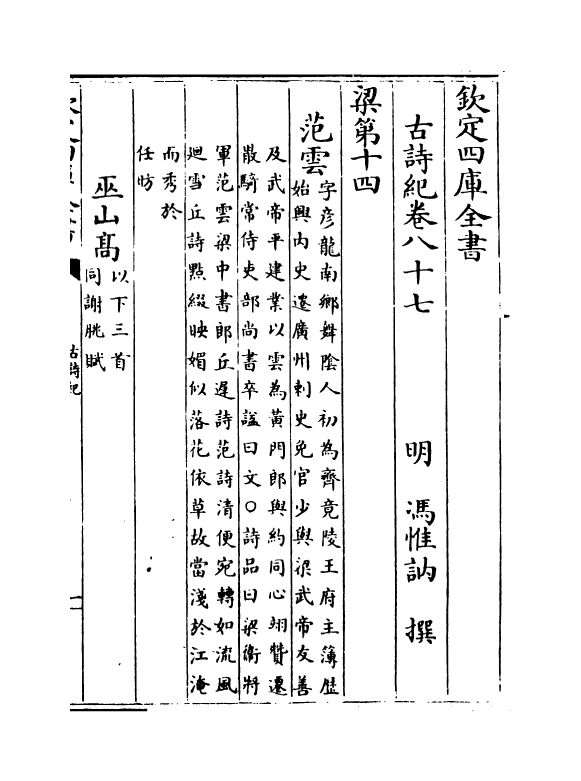 欽定四庫全書
古詩紀卷八十七
明 馮惟訥 撰
梁第十四
范雲
字彦龍南鄉舞陰人初為齊竟陵王府主簿歴
始興内史遷廣州刺史免官少與梁武帝友善
及武帝平建業以雲為黄門郎與約同心翊贊遷
散騎常侍吏部尚書卒諡曰文○詩品曰梁衛將
軍范雲梁中書郎丘遲詩范詩清便宛轉如流風
迴雪丘詩㸃綴映媚似落花依草故當淺於江淹
而秀於
任昉
巫山髙
以下三首
同謝朓賦
古詩紀
一